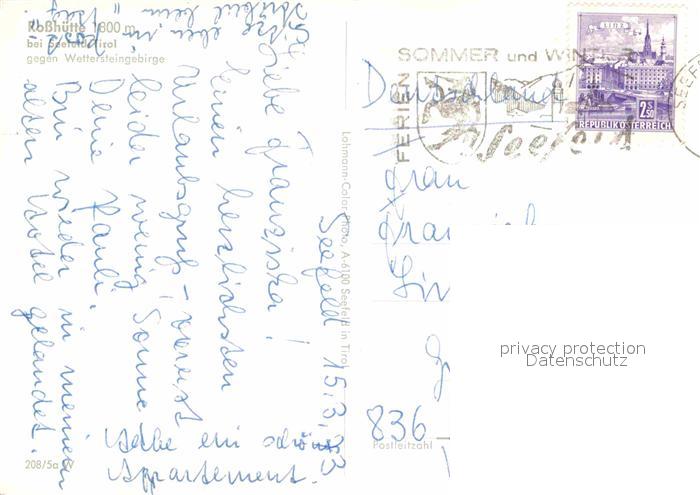 Roßhütte 1800 m
bei Seefeld/Tirol
gegen Wettersteingebirge
Seefeld 15.3.73
Liebe Franziska!
Einen herzlichsten
Urlaubsgruß - vorerst
leider wenig Sonne
Deine Pauli.
Bin wieder in meinem
alten Hotel gelandet.
Habe ein schönes
Appartement.
208/5a W
Lohmann-Color-Photo, A-6100 Seefeld in Tirol
SOMMER und WINTER
FERIEN
Seefeld
LINZ
2.50
REPUBLIK ÖSTERREICH
SEEF
Deutschland
Frau
836
Postleitzahl
privacy protection
Datenschutz